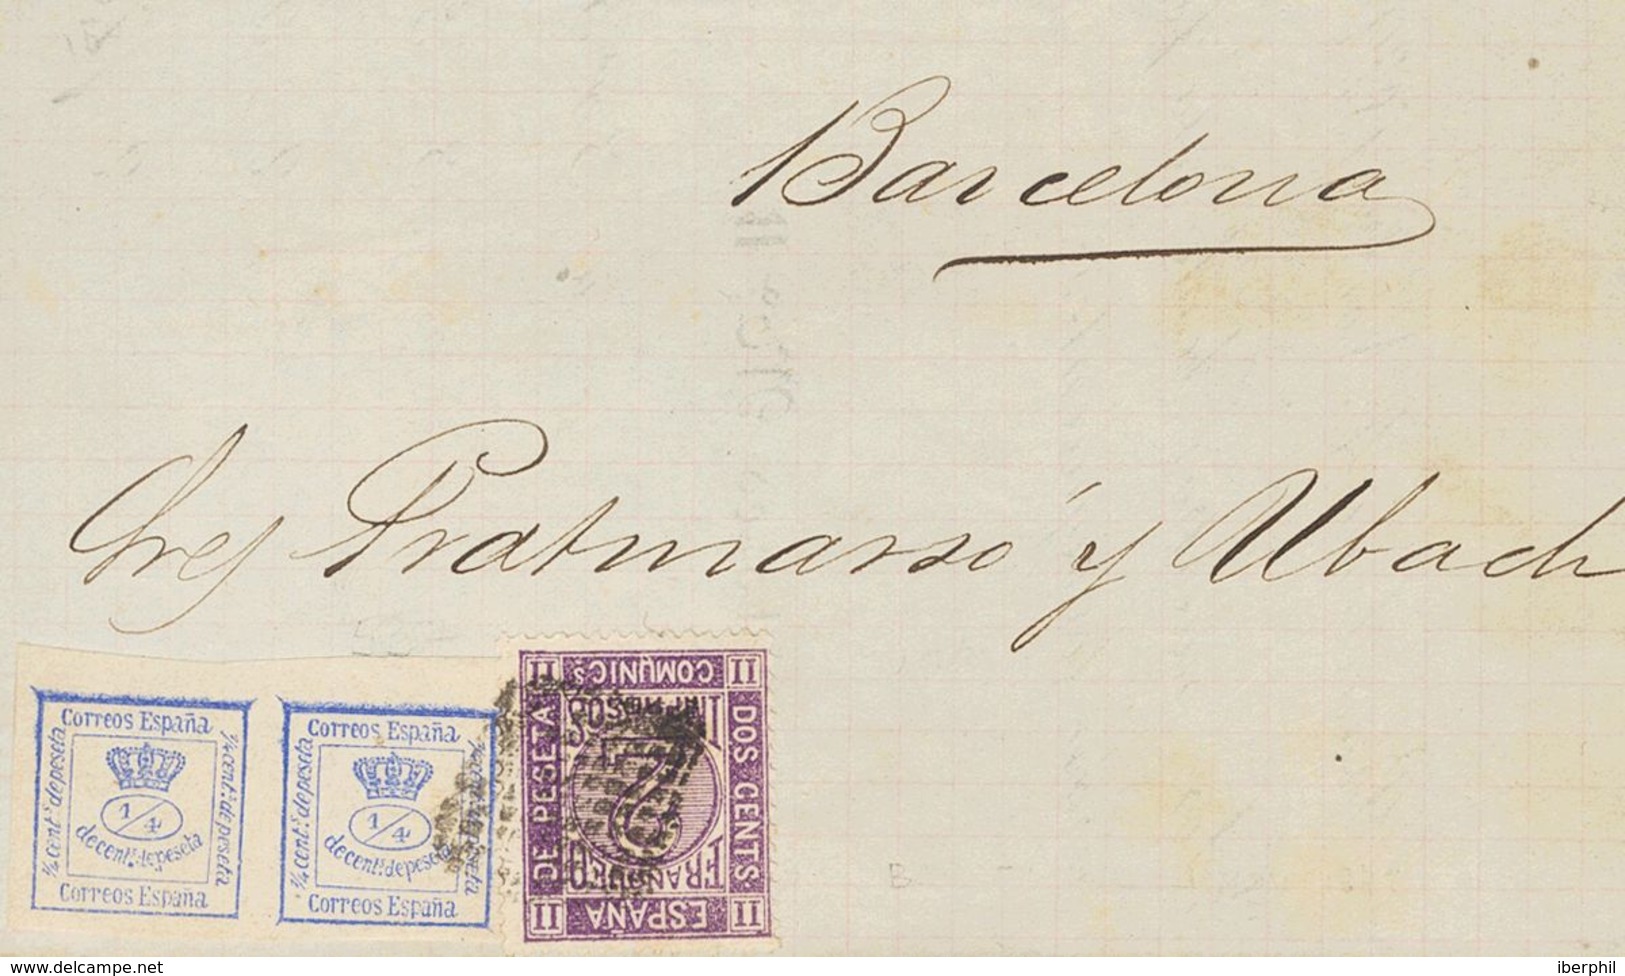 Barcelona
Sres Pratmarso y Ubach
Correos España
¼ cent.º de peseta
¼ cent.º de peseta
1/4
de cent.º de peseta
Correos España
Correos España
¼ cent.º de peseta
1/4
de cent.º de peseta
Correos España
II COMUNICS II
IMPRESOS
DOS CENTS.
DE PESETA
2
FRANQUEO
II ESPAÑA II
B
www.delcampe.net
iberphil